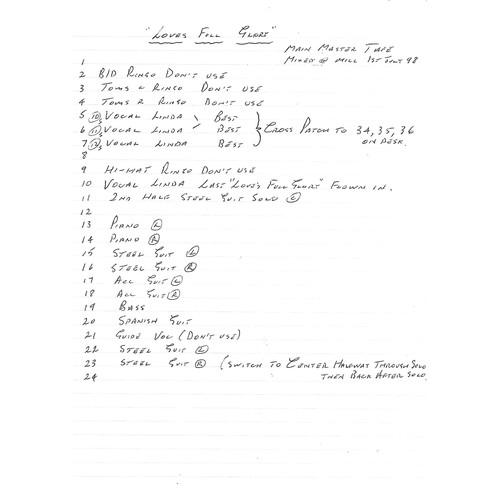 "LOVES FULL GLORY"
MAIN MASTER TAPE
MIXED @ MILL 1ST JULY 98
1
2 B/D RINGO DON'T USE
3 TOMS L RINGO DON'T USE
4 TOMS R RINGO DON'T USE
5 10 VOCAL LINDA BEST
6 11 VOCAL LINDA BEST } CROSS PATCH TO 34, 35, 36
7 12 VOCAL LINDA BEST ON DESK.
8
9 HI-HAT RINGO DON'T USE
10 VOCAL LINDA LAST "LOVE'S FULL GLORY" FLOWN IN.
11 2ND HALF STEEL GUIT SOLO C
12
13 PIANO L
14 PIANO R
15 STEEL GUIT L
16 STEEL GUIT R
17 ACC GUIT L
18 ACC GUIT R
19 BASS
20 SPANISH GUIT
21 GUIDE VOC (DON'T USE)
22 STEEL GUIT L
23 STEEL GUIT R (SWITCH TO CENTER HALFWAY THROUGH SOLO
24 THEN BACK AFTER SOLO